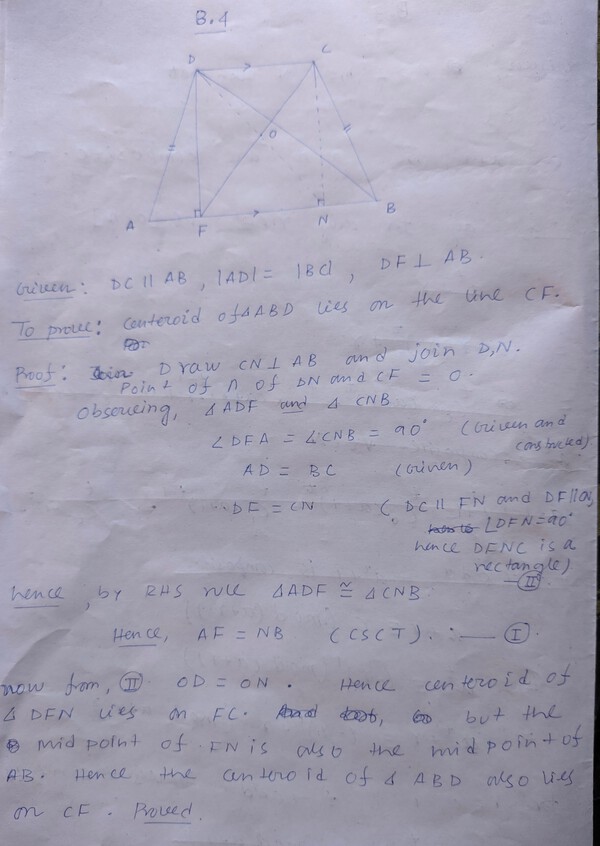 B.4
D
C
O
A
F
N
B
Given: DC || AB, |AD| = |BC|, DF ⊥ AB.
To prove: Centeroid of ΔABD lies on the line CF.
Proof: Draw CN ⊥ AB and join D,N.
Point of ∩ of DN and CF = O.
Observing, ΔADF and ΔCNB
∠DFA = ∠CNB = 90° (Given and constructed)
AD = BC (Given)
DF = CN ( DC || FN and DF ||
∠DFN = 90°
hence DFNC is a
rectangle)
— II
hence, by RHS rule ΔADF ≅ ΔCNB
Hence, AF = NB (CSCT). — I.
now from, II OD = ON. Hence centeroid of
Δ DFN lies on FC. but the
midpoint of FN is also the midpoint of
AB. Hence the centeroid of Δ ABD also lies
on CF. Proved.